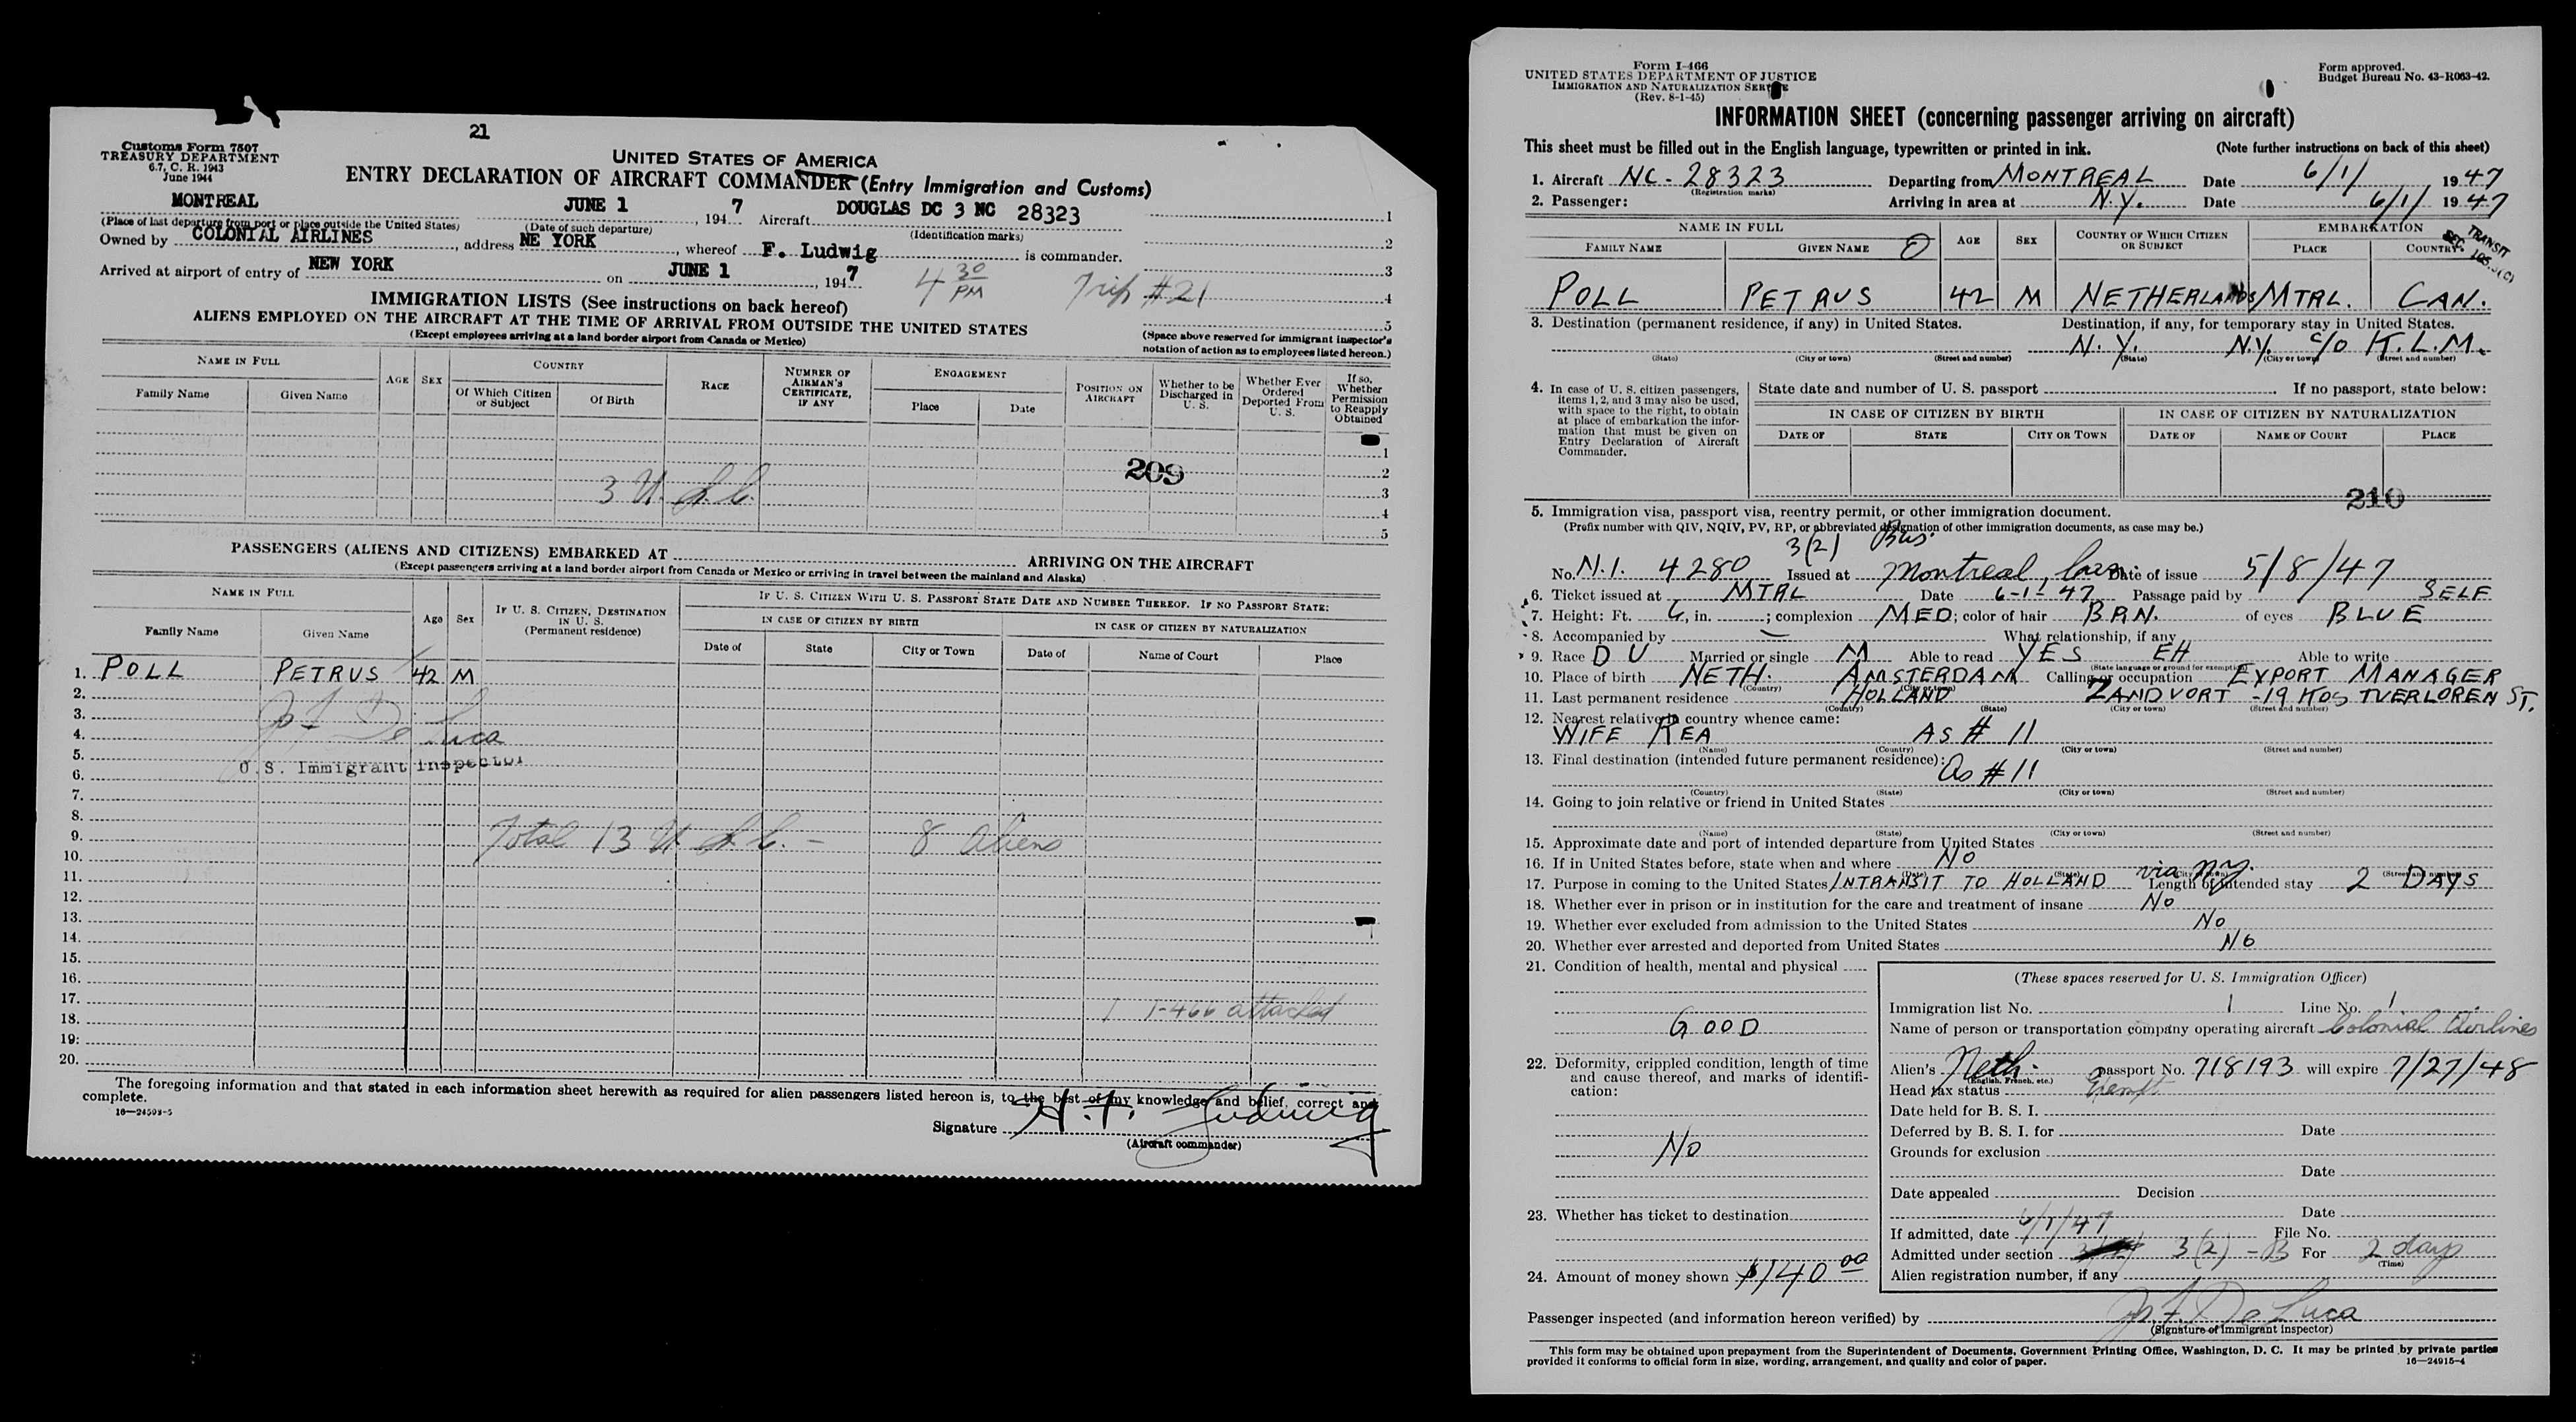 21
Customs Form 7507
TREASURY DEPARTMENT
6.7, C. R. 1943
June 1944
UNITED STATES OF AMERICA
ENTRY DECLARATION OF AIRCRAFT COMMANDER (Entry Immigration and Customs)
MONTREAL JUNE 1, 1947 Aircraft DOUGLAS DC 3 NC 28323 1
(Place of last departure from port or place outside the United States) (Date of such departure) (Identification marks)
Owned by COLONIAL AIRLINES, address NE YORK, whereof F. Ludwig is commander. 2
Arrived at airport of entry of NEW YORK on JUNE 1, 1947 4 30 PM Trip #21 3
4
5
IMMIGRATION LISTS (See instructions on back hereof)
ALIENS EMPLOYED ON THE AIRCRAFT AT THE TIME OF ARRIVAL FROM OUTSIDE THE UNITED STATES
(Except employees arriving at a land border airport from Canada or Mexico)
(Space above reserved for immigrant inspector's notation of action as to employees listed hereon.)
NAME IN FULL AGE SEX COUNTRY RACE NUMBER OF AIRMAN'S CERTIFICATE, IF ANY ENGAGEMENT POSITION ON AIRCRAFT Whether to be Discharged in U. S. Whether Ever Ordered Deported From U. S. If so, Whether Permission to Reapply Obtained
Family Name Given Name Of Which Citizen or Subject Of Birth Place Date
1
209 2
3 U. S. C. 3
4
5
PASSENGERS (ALIENS AND CITIZENS) EMBARKED AT ARRIVING ON THE AIRCRAFT
(Except passengers arriving at a land border airport from Canada or Mexico or arriving in travel between the mainland and Alaska)
NAME IN FULL Age Sex IF U. S. CITIZEN, DESTINATION IN U. S. (Permanent residence) IF U. S. CITIZEN WITH U. S. PASSPORT STATE DATE AND NUMBER THEREOF. IF NO PASSPORT STATE:
IN CASE OF CITIZEN BY BIRTH IN CASE OF CITIZEN BY NATURALIZATION
Family Name Given Name Date of State City or Town Date of Name of Court Place
1. POLL PETRUS 42 M
2.
3.
4. De Luca
5.
6. U.S. Immigrant Inspector
7.
8.
9. Total 13 U S C. - 8 aliens
10.
11.
12.
13.
14.
15.
16.
17.
18. 1 I-466 attached
19.
20.
The foregoing information and that stated in each information sheet herewith as required for alien passengers listed hereon is, to the best of my knowledge and belief, correct and complete.
16—24593-5
Signature H. F. Ludwig
(Aircraft commander)
Form I-466
UNITED STATES DEPARTMENT OF JUSTICE
IMMIGRATION AND NATURALIZATION SERVICE
(Rev. 8-1-45)
Form approved.
Budget Bureau No. 43-R063-42.
INFORMATION SHEET (concerning passenger arriving on aircraft)
This sheet must be filled out in the English language, typewritten or printed in ink. (Note further instructions on back of this sheet)
1. Aircraft NC-28323 Departing from MONTREAL Date 6/1/ 1947
(Registration marks)
2. Passenger: Arriving in area at N.Y. Date 6/1/ 1947
NAME IN FULL AGE SEX COUNTRY OF WHICH CITIZEN OR SUBJECT EMBARKATION
FAMILY NAME GIVEN NAME PLACE COUNTRY
TRANSIT
POLL PETRUS 42 M NETHERLANDS MTRL. CAN.
3. Destination (permanent residence, if any) in United States. Destination, if any, for temporary stay in United States.
N.Y. N.Y. c/o K.L.M.
(State) (City or town) (Street and number) (State) (City or town) (Street and number)
4. In case of U. S. citizen passengers, items 1, 2, and 3 may also be used, with space to the right, to obtain at place of embarkation the information that must be given on Entry Declaration of Aircraft Commander.
State date and number of U. S. passport If no passport, state below:
IN CASE OF CITIZEN BY BIRTH IN CASE OF CITIZEN BY NATURALIZATION
DATE OF STATE CITY OR TOWN DATE OF NAME OF COURT PLACE
210
5. Immigration visa, passport visa, reentry permit, or other immigration document.
(Prefix number with QIV, NQIV, PV, RP, or abbreviated designation of other immigration documents, as case may be.)
3(2) Bus.
No. N.I. 4280 Issued at Montreal, Can. Date of issue 5/8/47
6. Ticket issued at MTRL Date 6-1-47 Passage paid by SELF
7. Height: Ft. 6, in. ; complexion MED; color of hair BRN. of eyes BLUE
8. Accompanied by — What relationship, if any
9. Race DU Married or single M Able to read YES EH Able to write
(State language or ground for exemption)
10. Place of birth NETH. AMSTERDAM Calling or occupation EXPORT MANAGER
(Country) (City or town)
11. Last permanent residence HOLLAND ZANDVORT - 19 KOS TVERLOREN ST.
(Country) (State) (City or town) (Street and number)
12. Nearest relative in country whence came:
WIFE REA AS # 11
(Name) (Country) (City or town) (Street and number)
13. Final destination (intended future permanent residence): As # 11
(Country) (State) (City or town) (Street and number)
14. Going to join relative or friend in United States
(Name) (State) (City or town) (Street and number)
15. Approximate date and port of intended departure from United States
16. If in United States before, state when and where NO
(Date) (State) (City or town) (Street and number)
17. Purpose in coming to the United States INTRANSIT TO HOLLAND via N.Y. Length of intended stay 2 DAYS
18. Whether ever in prison or in institution for the care and treatment of insane NO
19. Whether ever excluded from admission to the United States NO
20. Whether ever arrested and deported from United States NO
21. Condition of health, mental and physical
GOOD
22. Deformity, crippled condition, length of time and cause thereof, and marks of identification:
NO
23. Whether has ticket to destination
24. Amount of money shown $140 00
(These spaces reserved for U. S. Immigration Officer)
Immigration list No. 1 Line No. 1
Name of person or transportation company operating aircraft Colonial Airlines
Alien's Neth. passport No. 718193 will expire 7/27/48
(English, French, etc.)
Head tax status Exempt
Date held for B. S. I.
Deferred by B. S. I. for Date
Grounds for exclusion
Date
Date appealed Decision
Date
If admitted, date 6/1/47 File No.
Admitted under section 3(2) - B For 2 days
(Time)
Alien registration number, if any
Passenger inspected (and information hereon verified) by De Luca
(Signature of immigrant inspector)
This form may be obtained upon prepayment from the Superintendent of Documents, Government Printing Office, Washington, D. C. It may be printed by private parties
provided it conforms to official form in size, wording, arrangement, and quality and color of paper. 16—24915-4